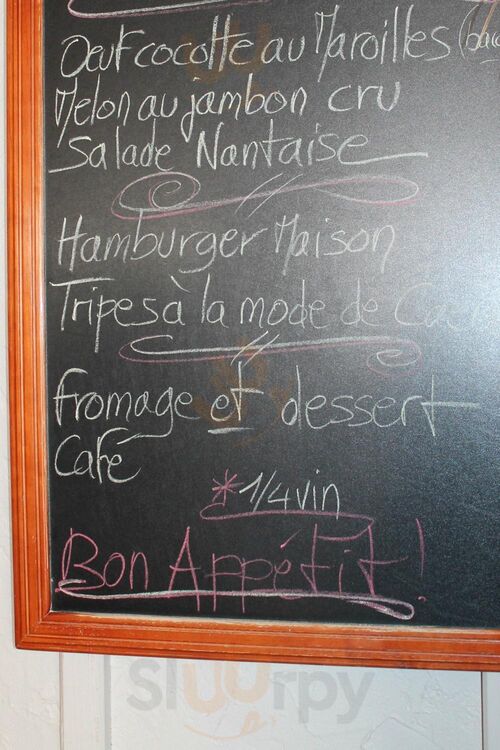 Oeuf cocotte au Maroilles
Melon au jambon cru
Salade Nantaise
Hamburger Maison
Tripes à la mode de Caen
Fromage et dessert
Café
*1/4 vin
Bon Appétit!
Sluurpy